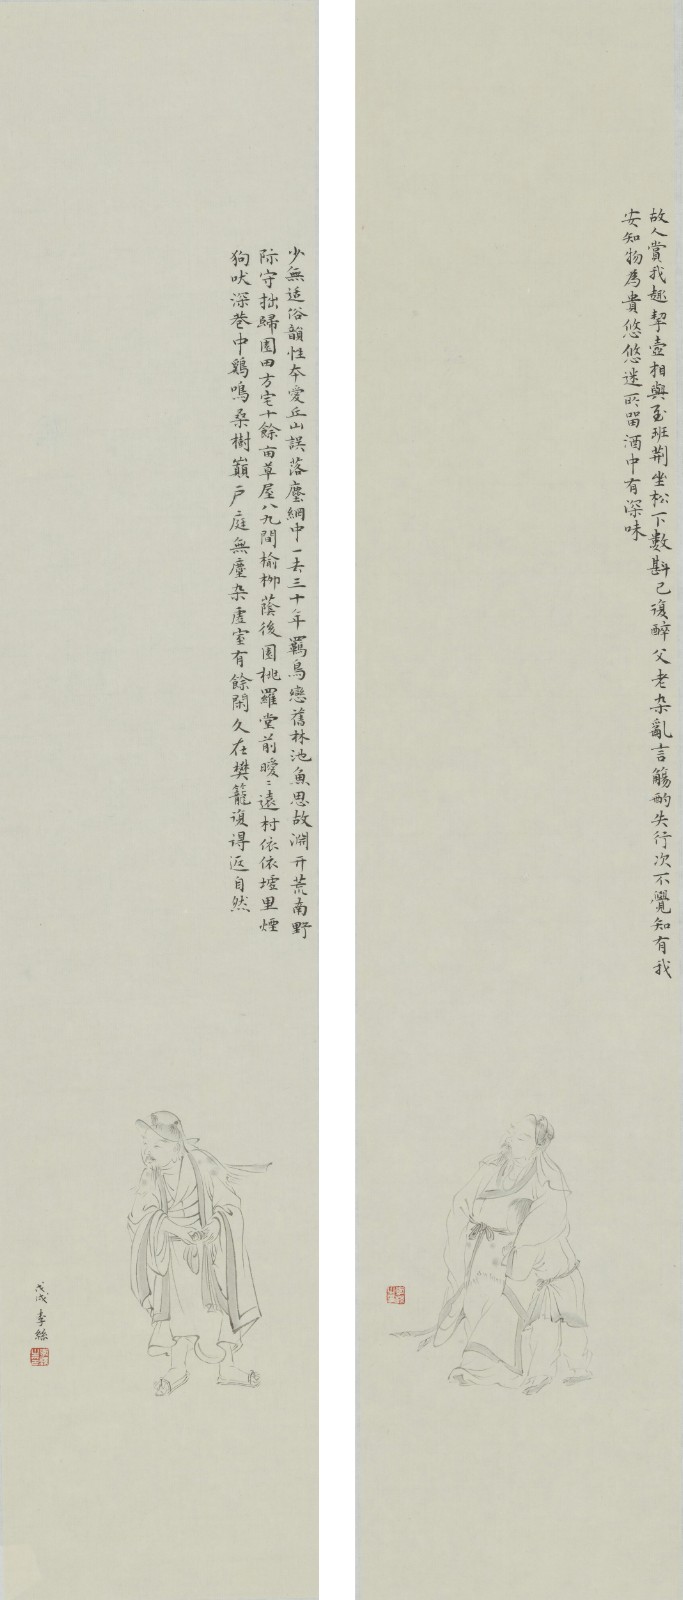 故人賞我趣挈壺相與至班荆坐松下數斟已復醉父老杂亂言觴酌失行次不覺知有我
安知物為貴悠悠迷所留酒中有深味
少無适俗韻性本愛丘山誤落塵網中一去三十年羈鳥戀舊林池魚思故淵开荒南野
际守拙歸園田方宅十餘亩草屋八九間榆柳蔭後園桃羅堂前曖〻遠村依依墟里煙
狗吠深巷中鷄鳴桑樹巔户庭無塵杂虛室有餘閑久在樊籠復得返自然
戊戌李絲